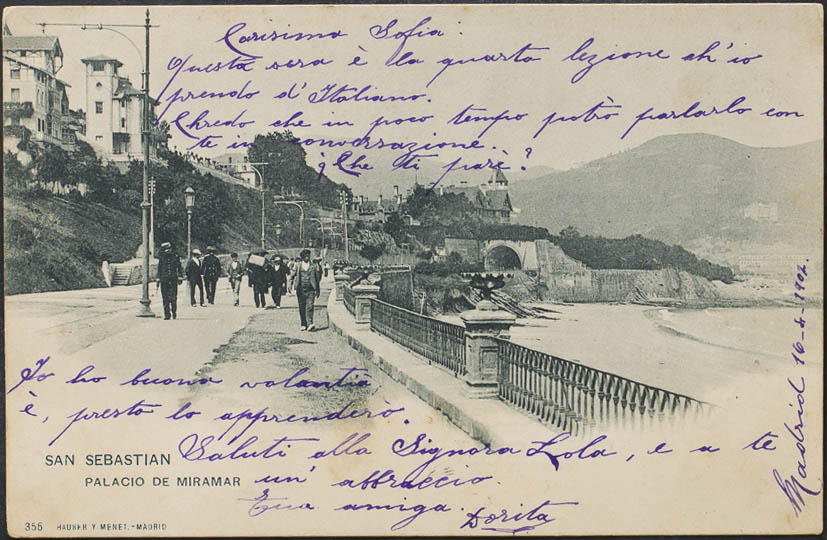 Carisima Sofia:
Questa sera è la quarta lezione ch'io
prendo d'Italiano.
Chredo che in poco tempo potrò parlarlo con
te in conversazione..
¿Che ti pare?
Io ho buona volantiá
è, presto lo apprenderò.
Saluti alla Signora Lola, e a te
un' abbraccio.
Tua amiga.
Dorita
Madrid 16-4-1902.
SAN SEBASTIAN
PALACIO DE MIRAMAR
355 HAUSER Y MENET.-MADRID